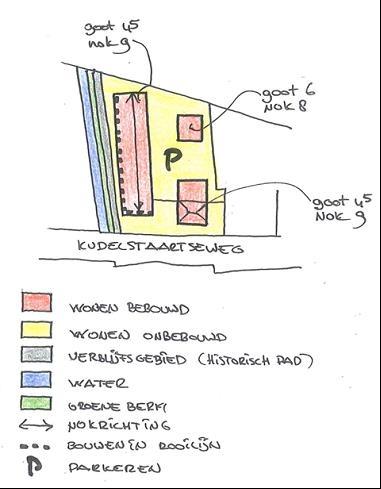 goot 4⁵
nok 9
goot 6
nok 8
P
goot 4⁵
nok 9
KUDELSTAARTSEWEG
WONEN BEBOUWD
WONEN ONBEBOUWD
VERBLIJFSGEBIED (HISTORISCH PAD)
WATER
GROENE BERM
NOKRICHTING
BOUWEN IN ROOILIJN
P PARKEREN